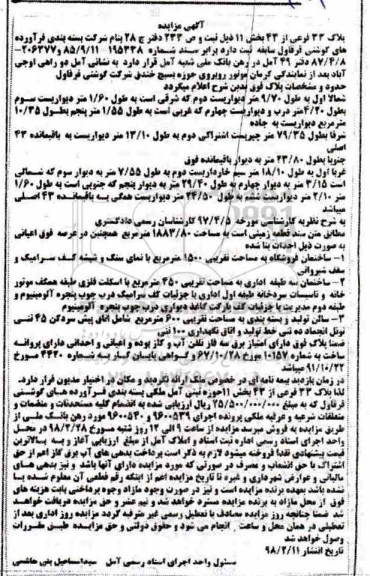 آگهی مزایده
پلاک ۳۳ فرعی از ۴۳ بخش ۱۱ ذیل ثبت و ص ۲۳۳ دفتر ج ۲۸ بنام شرکت بسته بندی فرآورده
های گوشتی قرفاول سابقه ثبت دارد برابر سند شماره ۱۹۵۳۳۸ ۸۵/۹/۱۱-۲۰۶۳۷۷
۸۷/۴/۸ دفتر ۴۹ آمل در رهن بانک ملی شعبه آمل قرار دارد به نشانی آمل دو راهی اوجی
آباد بعد از نمایندگی کرمان موتور روبروی حوزه بسیج خندق شرکت گوشتی قرفاول
حدود و مشخصات پلاک فوق بدین شرح اعلام میگردد
شمالا اول به طول ۹/۷۰ متر دیواریست دوم که شرقی است به طول ۱/۶۰ متر دیواریست سوم
بطول ۴/۴۰ متر درب و دیواریست چهارم که غربی است به طول ۱/۵۵ متر پنجم بطول ۱۰/۳۵
متر مربع دیواریست به جاده
شرقا بطول ۷۹/۳۵ متر چپریست اشتراکی دوم به طول ۱۳/۱۰ متر دیواریست به باقیمانده ۴۳
اصلی
جنوبا بطول ۲۳/۸۰ متر به دیوار باقیمانده فوق
غربا اول به طول ۱۸/۱۰ متر سیم خارداریست دوم به طول ۷/۵۵ متر به دیوار سوم که شمالی
است ۳/۱۵ متر به دیوار چهارم به طول ۲۹/۴۰ متر به دیوار پنجم که جنوبی است به طول ۱/۶۰
متر ۲/۱۰ متر دیواریست ششم به طول ۲۴/۵۰ متر دیواریست همگی به باقیمانده ۴۳ اصلی
میباشد
به شرح نظریه کارشناسی مورخه ۹۷/۴/۵ کارشناسان رسمی دادگستری
مطابق متن سند قطعه زمینی است به مساحت ۱۸۸۳/۸۰ مترمربع همچنین در عرصه فوق اعیانی
به صورت ذیل احداث بنا شده
۱- ساختمان فروشگاه به مساحت تقریبی ۱۵۰۰ مترمربع با نمای سنگ و شیشه کف سرامیک و
سقف شیروانی
۲- ساختمان سه طبقه اداری به مساحت تقریبی ۴۵۰ مترمربع با اسکلت فلزی طبقه همکف موتور
خانه و تاسیسات سردخانه طبقه اول اداری با جزئیات کف سرامیک درب چوب پنجره آلومینیوم و
طبقه دوم مدیریت با جزئیات کف پارکت کاغذ دیواری درب چوب پنجره آلومینیوم
۳- سالن تولید و بسته بندی به مساحت تقریبی ۶۰۰ مترمربع شامل اتاق پیش سردکن ۴۵ تنی
تونل انجماد ده تنی خط تولید و اتاق نگهداری ۱۰۰ تنی
ضمنا پلاک فوق دارای امتیاز برق سه فاز تلفن آب و گاز بوده و اعیانی و احداثی دارای پروانه
ساخت به شماره ۱۰۱۵۷ مورخ ۶۷/۱۰/۲۸ و گواهی پایان کار به شماره ۴۴۴۰ مورخ
۹۱/۱۰/۲۲ میباشد
در زمان بازدید بیمه نامه ای در خصوص ملک ارائه نگردید و مکان در اختیار مدیون قرار دارد.
لذا پلاک ۳۳ فرعی از ۴۳ بخش ۱۱ حوزه ثبتی آمل ملکی بسته بندی فرآورده های گوشتی
قرقاول که به مبلغ ۲۵/۵۰۰/۰۰۰/۰۰۰ ریال ارزیابی شده به انضمام کلیه مستحدثات و منضمات و
متعلقات شرعیه و عرفیه ملکی پرونده اجرای ۹۶۰۰۵۳۹ و ۹۶۰۰۵۴۰ مورد رهن بانک ملی از
طریق مزایده به فروش میرسد مزایده از ساعت ۹ الی ۱۲ روز شنبه مورخ ۹۸/۲/۲۸ در محل
واحد اجرای اسناد رسمی اداره ثبت اسناد و املاک آمل از مبلغ ارزیابی آغاز و به بالاترین
قیمت پیشنهادی نقدا فروخته میشود لازم به ذکر است پرداخت بدهی های آب برق گاز اعم از حق
اشتراک یا حق انشعاب و مصرف در صورتی که مورد مزایده دارای آنها باشد و نیز بدهی های
مالیاتی و عوارض شهرداری و غیره تا تاریخ مزایده اعم از اینکه رقم قطعی آن معلوم شده یا
نشده باشد بعهده برنده مزایده است و نیز در صورت وجود مازاد وجوه پرداختی بابت هزینه های
فوق از محل مازاد به برنده مزایده مسترد خواهد شد و نیم عشر و حق مزایده نقدا دریافت خواهد
شد ضمنا چنانچه روز مزایده مصادف با تعطیل رسمی غیر مترقبه گردد مزایده روز اداری بعد از
تعطیلی در همان محل و ساعت انجام می شود و حقوق دولتی و حق مزایده طبق مقررات
وصول خواهد شد
تاریخ انتشار ۹۸/۲/۱۱
مسئول واحد اجرای اسناد رسمی آمل سیداسماعیل بنی هاشمی